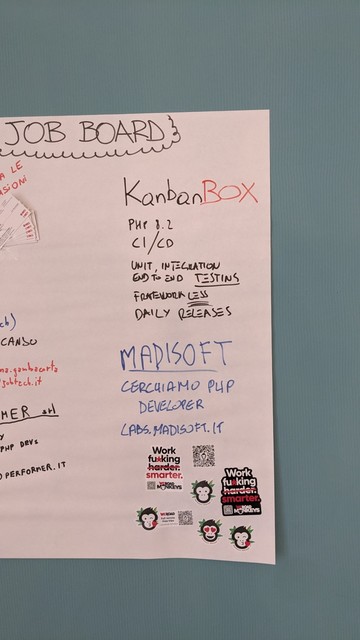 JOB BOARD
LE
KanbanBOX
PHP 8.2
CI/CD
UNIT, INTEGRATION
END TO END TESTING
FRAMEWORK LESS
DAILY RELEASES
CANSO
MADISOFT
CERCHIAMO PHP
DEVELOPER
LABS.MADISOFT.IT
MER srl
PHP DEVS
PERFORMER.IT
Work
fu*king
harder.
smarter.
Work
fu*king
harder.
smarter.
MONKEYS